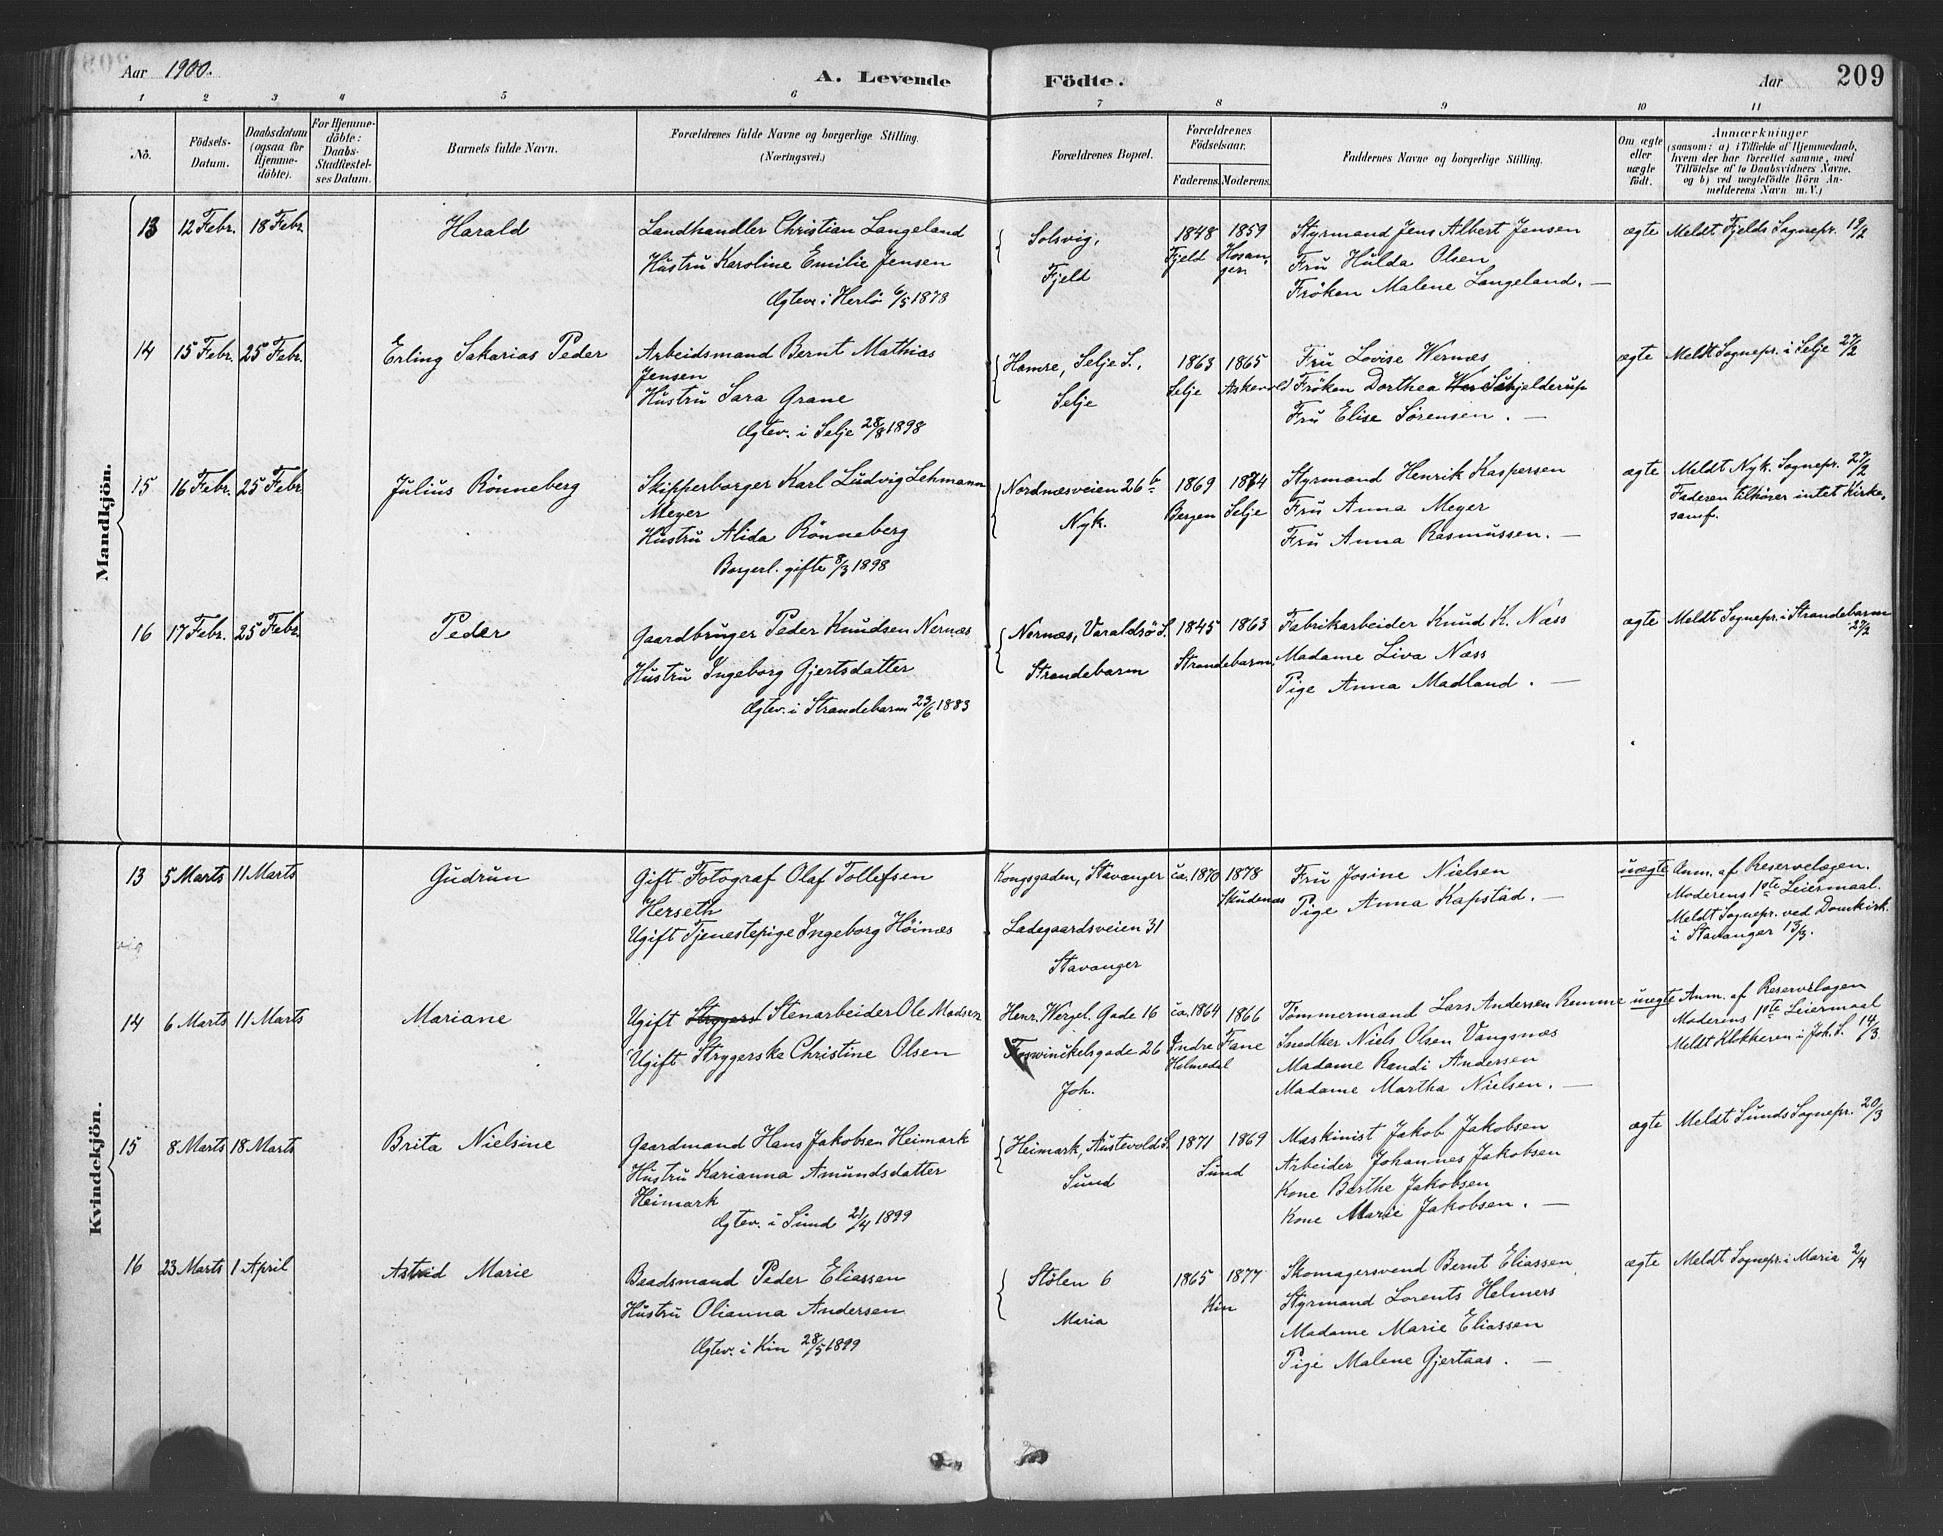 Aar 1900.
A. Levende Födte.
Aar
209
1 2 3 4 5 6 7 8 9 10 11
No.
Födsels-Datum.
Daabsdatum (ogsaa for Hjemme-döbte).
For Hjemme-döbte: Daabs-Stadfæstel-ses Datum.
Barnets fulde Navn.
Forældrenes fulde Navne og borgerlige Stilling. (Næringsvei.)
Forældrenes Bopæl.
Forældrenes Födselsaar.
Faderens. Moderens.
Faddernes Navne og borgerlige Stilling.
Om ægte eller uægte födt.
Anmærkninger
(saasom: a) i Tilfælde af Hjemmedaab,
hvem der har forrettet samme, med
Tilföielse af to Daabsvidners Navne,
og b) ved uægtefödte Börn An-
melderens Navn m. V.)
Mandkjön.
13 12 Febr. 18 Febr. Harald
Landhandler Christian Langeland
Hustru Karoline Emilie Jensen
Ægtev. i Herlö 6/5 1878
Solsvig,
Fjeld
1848 1859
Fjeld Hosan-
ger.
Styrmand Jens Albert Jensen
Fru Hulda Olsen
Fröken Malene Langeland. —
ægte Meldt Fjelds Sognepr. 19/2
14 15 Febr. 25 Febr. Erling Sakarias Peder
Arbeidsmand Bernt Mathias
Jensen
Hustru Sara Grane
Ægtev. i Selje 28/8 1898
Hamre, Selje S.,
Selje
1863 1865
Selje Askevold
Fru Lovise Wernæs
Fröken Dorthea Schjelderup
Fru Elise Sörensen. —
ægte Meldt Sognepr. i Selje 27/2
15 16 Febr. 25 Febr Julius Rönneberg
Skipperborger Karl Ludvig Lehmann
Meyer
Hustru Alida Rönneberg
Borgerl. gifte 8/3 1898
Nordnæsveien 26 b
Nyk.
1869 1874
Bergen Selje
Styrmand Henrik Kaspersen
Fru Anna Meyer
Fru Anna Rasmussen. —
ægte Meldt Nyk. Sognepr. 27/2
Faderen tilhörer intet Kirke-
samf.
16 17 Febr. 25 Febr. Peder
Gaardbruger Peder Knudsen Nernæs
Hustru Ingeborg Gjertsdatter
Ægtev. i Strandebarm 23/6 1883
Nernæs, Varaldsö S.
Strandebarm
1845 1863
Strandebarm.
Fabrikarbeider Knud K. Næss
Madame Liva Næss
Pige Anna Madland. —
ægte Meldt Sognepr. i Strandebarm
27/2
Kvindekjön.
13 5 Marts 11 Marts Gudrun
Gift Fotograf Olaf Tollefsen
Herseth
Ugift Tjenestepige Ingeborg Höinæs
Kongsgaden, Stavanger
Ladegaardsveien 31
Stavanger
ca. 1870 1878
Skudenæs
Fru Josine Nielsen
Pige Anna Kapstad. —
uægte Anm. af Reservelægen.
Moderens 1ste Leiermaal.
Meldt Sognepr. ved Domkirk.
i Stavanger 13/3.
14 6 Marts 11 Marts Mariane
Ugift Stenarbeider Ole Madsen
Ugift Strygerske Christine Olsen
Henr. Wergel. Gade 16
Foswinckelsgade 26
Joh.
ca. 1864 1866
Indre Fane
Holmedal
Tömmermand Lars Andersen Remme
Snedker Niels Olsen Vangsnæs
Madame Randi Andersen
Madame Martha Nielsen. —
uægte Anm. af Reservelægen
Moderens 1ste Leiermaal
Meldt Klokkeren i Joh. S. 14/3
15 8 Marts 18 Marts Brita Nielsine
Gaardmand Hans Jakobsen Heimark
Hustru Karianna Amundsdatter
Heimark
Ægtev. i Sund 21/4 1899
Heimark, Austevold S.
Sund
1871 1869
Sund
Maskinist Jakob Jakobsen
Arbeider Johannes Jakobsen
Kone Berthe Jakobsen
Kone Marie Jakobsen. —
ægte Meldt Sunds Sognepr. 20/3
16 23 Marts 1 April Astrid Marie
Baadsmand Peder Eliassen
Hustru Olianna Andersen
Ægtev. i Kin 28/5 1899
Stölen 6
Maria
1865 1877
Kin
Skomagersvend Bernt Eliassen
Styrmand Lorents Helmers
Madame Marie Eliassen
Pige Malene Gjertaas. —
ægte Meldt Sognepr. i Maria 2/4